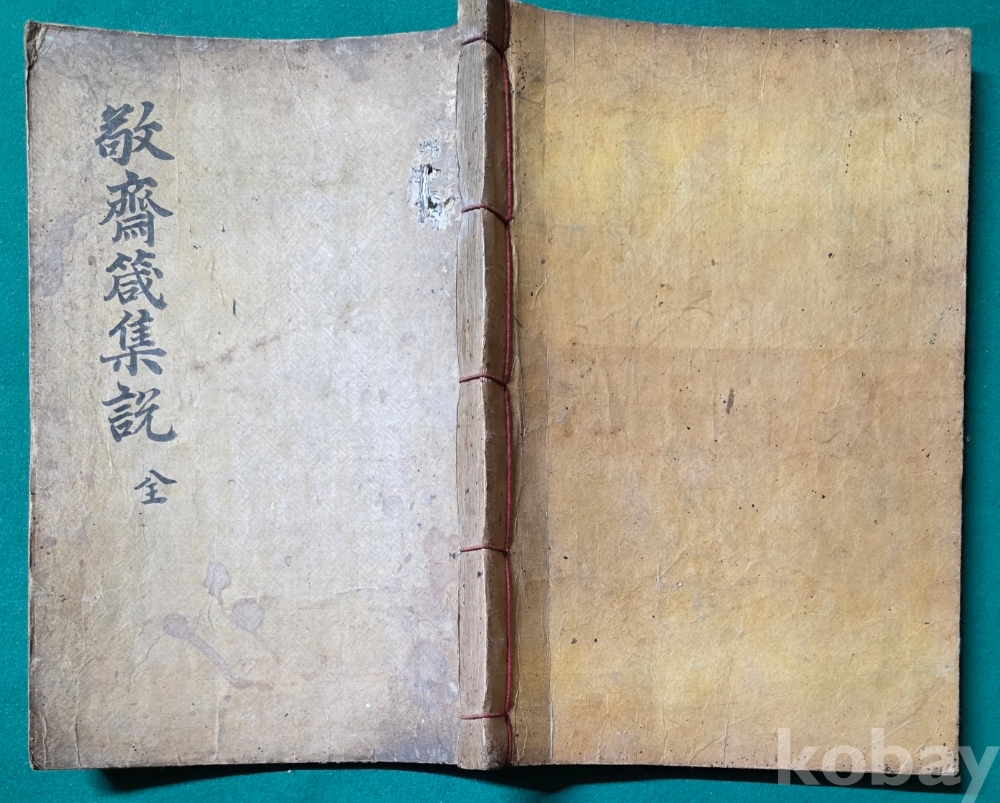 敬齋箴集説
全
kobay